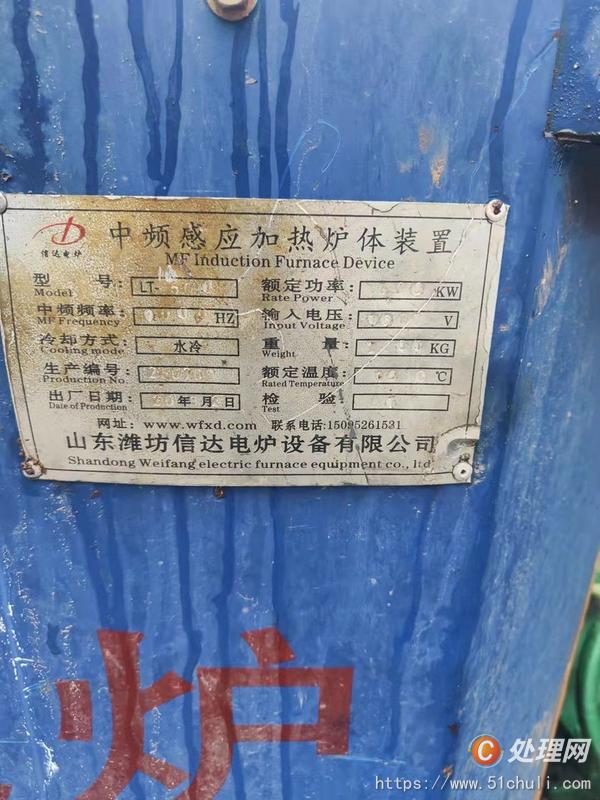 信达电炉
中频感应加热炉体装置
MF Induction Furnace Device
型 号: LT-
Model
额定功率: KW
Rate Power
中频频率: HZ
MF Frequency
输入电压: V
Input Voltage
冷却方式: 水冷
Cooling mode
重 量: KG
Weight
生产编号:
Production No.
额定温度: ℃
Rated Temperature
出厂日期: 年 月
Date of Production
检 验:
Test
网址: www.wfxd.com 联系电话:15095261531
山东潍坊信达电炉设备有限公司
Shandong Weifang electric furnace equipment co., ltd
炉
处理网
https://www.51chuli.com/